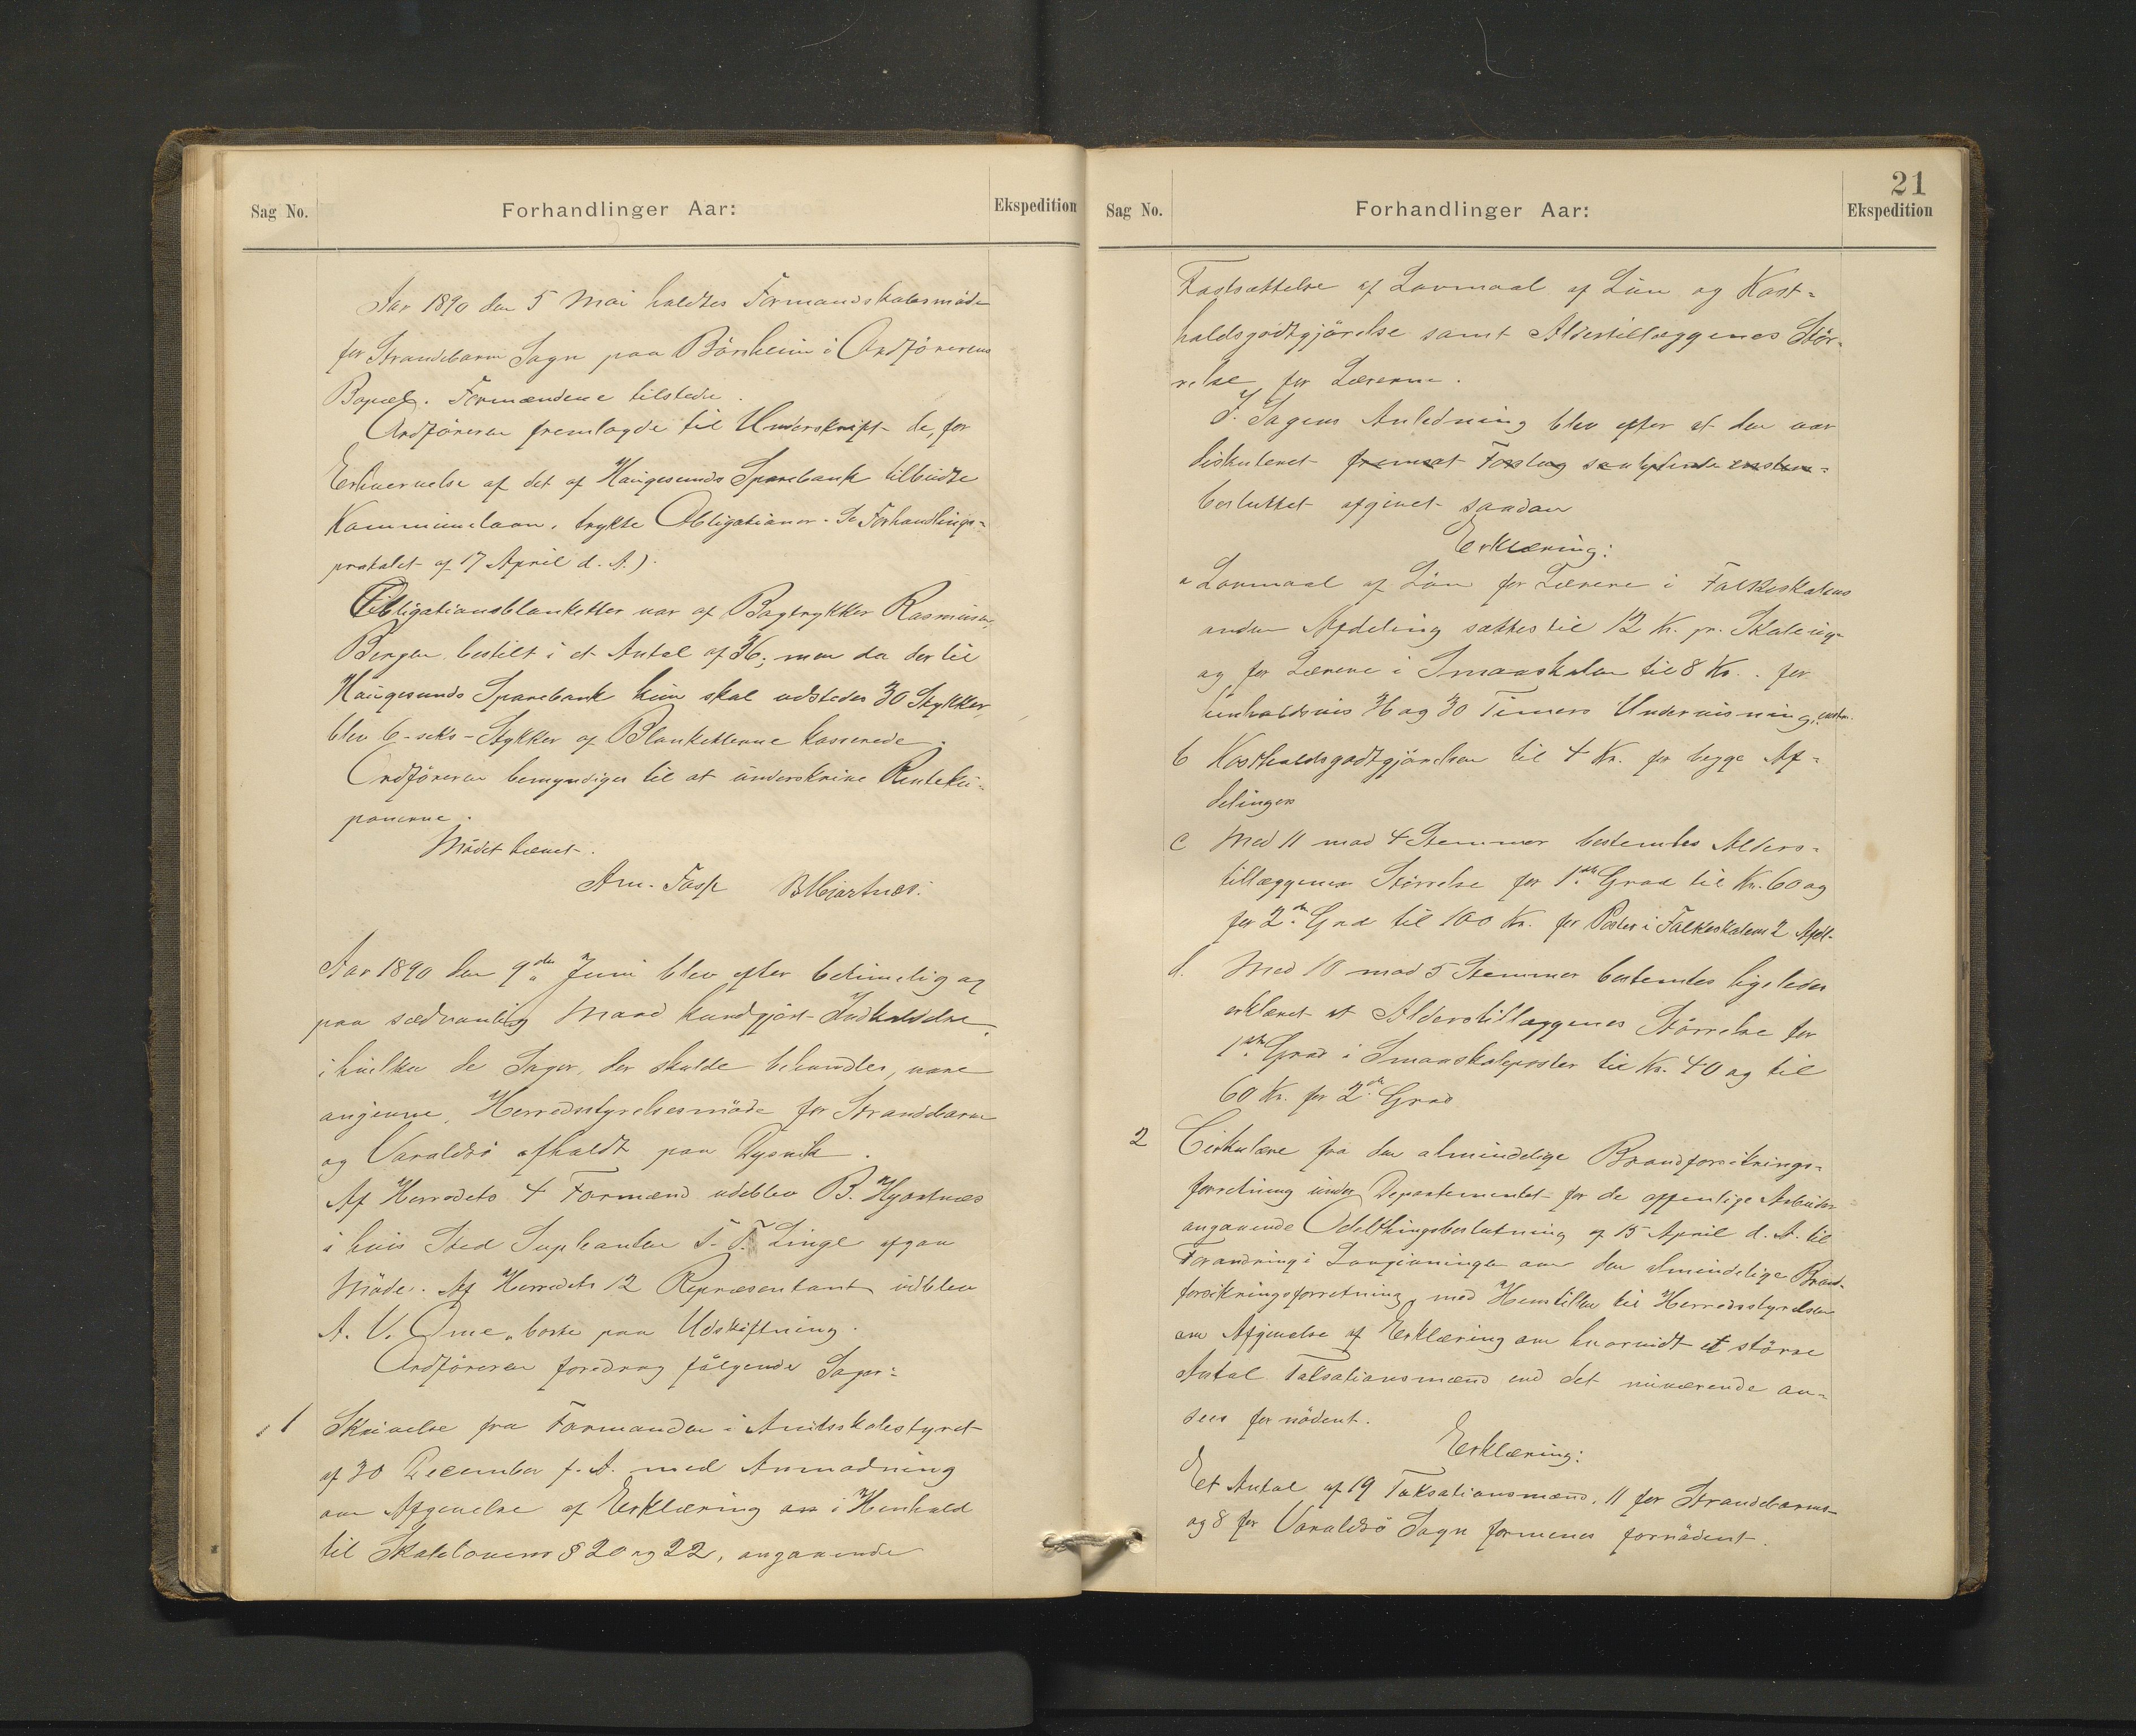 Sag No.
Forhandlinger Aar:
Ekspedition
Aar 1890 den 5 Mai holdtes Formandskabsmöde
for Strandebarm Sogn paa Börsheim i Ordförerens
Bopæl. Formændene tilstede.
Ordföreren fremlagde til Underskrift de, for
Erhvervelse af det af Haugesunds Sparebank tilbudte
Kommunelaan, trykte Obligationer. Se Forhandlings-
protokolet af 17 April d. A.).
Obligationsblanketter var af Bogtrykker Rasmussen,
Bergen, bestilt i et Antal af 36; men da der til
Haugesunds Sparebank kun skal udstedes 30 Stykker,
blev 6 - seks - Stykker af Blanketterne kasserede.
Ordföreren bemyndiges til at underskrive Renteku-
ponerne.
Mödet hævet.
Am. Foss BHjartnæs.
Aar 1890 den 9de Juni blev efter betimelig og
paa sædvanlig Maade kundgjort Indkaldelse,
i hvilken de Sager, der skulde behandles, vare
angivne, Herredsstyrelsesmöde for Strandebarm
og Varaldsö afholdt paa Dysvik.
Af Herredets 4 Formænd udeblev B. Hjartnæs
i hvis Sted Supleanten T. T. Linge afgav
Möde. Af Herredets 12 Repræsentant udblev
A. V. Ome, borte paa Udskiftning.
Ordföreren foredrog fölgende Sager:
1 Skrivelse fra Formanden i Amtsskolestyret
af 30 December f. A. med Anmodning
om Afgivelse af Erklæring an i Henhold
til Skolelovens § 20 og 22, angaaende
21
Sag No.
Forhandlinger Aar:
Ekspedition
Fastsættelse af Lavmaal af Lön og Kost-
holdsgodtgjörelse samt Alderstillæggenes Stör-
relse for Lærerne.
I Sagens Anledning blev efter at den var
diskuteret fremsat Forslag
besluttet afgivet saadan
Erklæring:
a Lavmaal af Lön for Lærere i Folkeskolens
anden Afdeling sættes til 12 Kr. pr. Skoleuge
og for Lærere i Smaaskolen til 8 Kr. for
henholdsvis 36 og 30 Timers Undervisning.
b Kostholdsgodtgjörelsen til 4 Kr. for begge Af-
delinger
c Med 11 mod 4 Stemmer bestemtes Alders-
tillæggenes Störrelse for 1ste Grad til Kr. 60 og
for 2den Grad til 100 Kr. for Poster i Folkeskolens 2 Afdl.
d. Med 10 mod 5 Stemmer bestemtes ligeledes
erklæret at Alderstillæggenes Störrelse for
1ste Grad i Smaaskoleposter til Kr. 40 og til
60 Kr. for 2den Grad
2 Cirkulære fra den almindelige Brandforsikrings-
forretning under Departementet for de offentlige Arbeider
angaaende Odelsthingsbeslutning af 15 April d. A. til
Forandring i Lovgivningen om den almindelige Brand-
forsikringsforretning, med Henstillen til Herredsstyrelsen
om Afgivelse af Erklæring om hvorvidt et större
Antal Taksationsmænd end det nuværende an-
sees fornödent.
Erklæring:
Et Antal af 19 Taksationsmænd, 11 for Strandebarms
og 8 for Varaldsö Sogn formenes fornödent.